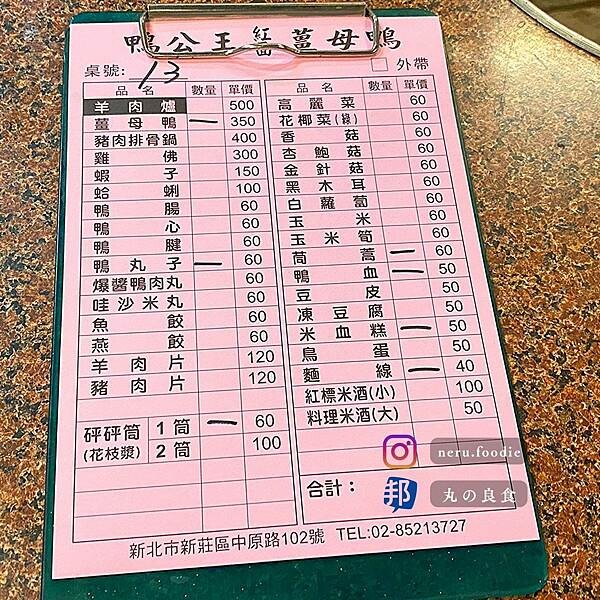 鴨公王紅面薑母鴨
桌號: 13 □ 外帶
品名 數量 單價
羊肉爐 500
薑母鴨 一 350
豬肉排骨鍋 400
雞佛 300
蝦子 150
蛤蜊 100
鴨腸 60
鴨心 60
鴨腱 60
鴨丸子 一 60
爆醬鴨肉丸 60
哇沙米丸 60
魚餃 60
燕餃 60
羊肉片 120
豬肉片 120
砰砰筒(花枝漿) 1筒 一 60
2筒 100
品名 數量 單價
高麗菜 60
花椰菜(綠) 60
香菇 60
杏鮑菇 60
金針菇 60
黑木耳 60
白蘿蔔 60
玉米 60
玉米筍 60
茼蒿 一 60
鴨血 一 50
豆皮 50
凍豆腐 50
米血糕 一 50
鳥蛋 50
麵線 一 40
紅標米酒(小) 100
料理米酒(大) 50
合計：
新北市新莊區中原路102號 TEL:02-85213727
neru.foodie
邦 丸の良食